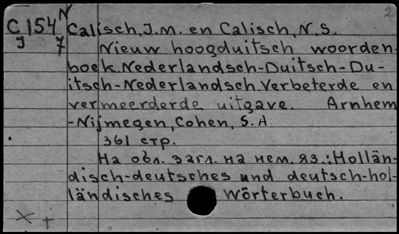 C 154 N Calisch, J.M. en Calisch, N.S.
J 7 Nieuw hoogduitsch woorden-
boek Nederlandsch-Duitsch-Du-
itsch-Nederlandsch. Verbeterde en
vermeerderde uitgave. Arnhem
-Nijmegen, Cohen, S. A
361 стр.
На обл. загл. на нем. яз.: Hollän-
disch-deutsches und deutsch-hol-
ländisches Wörterbuch.